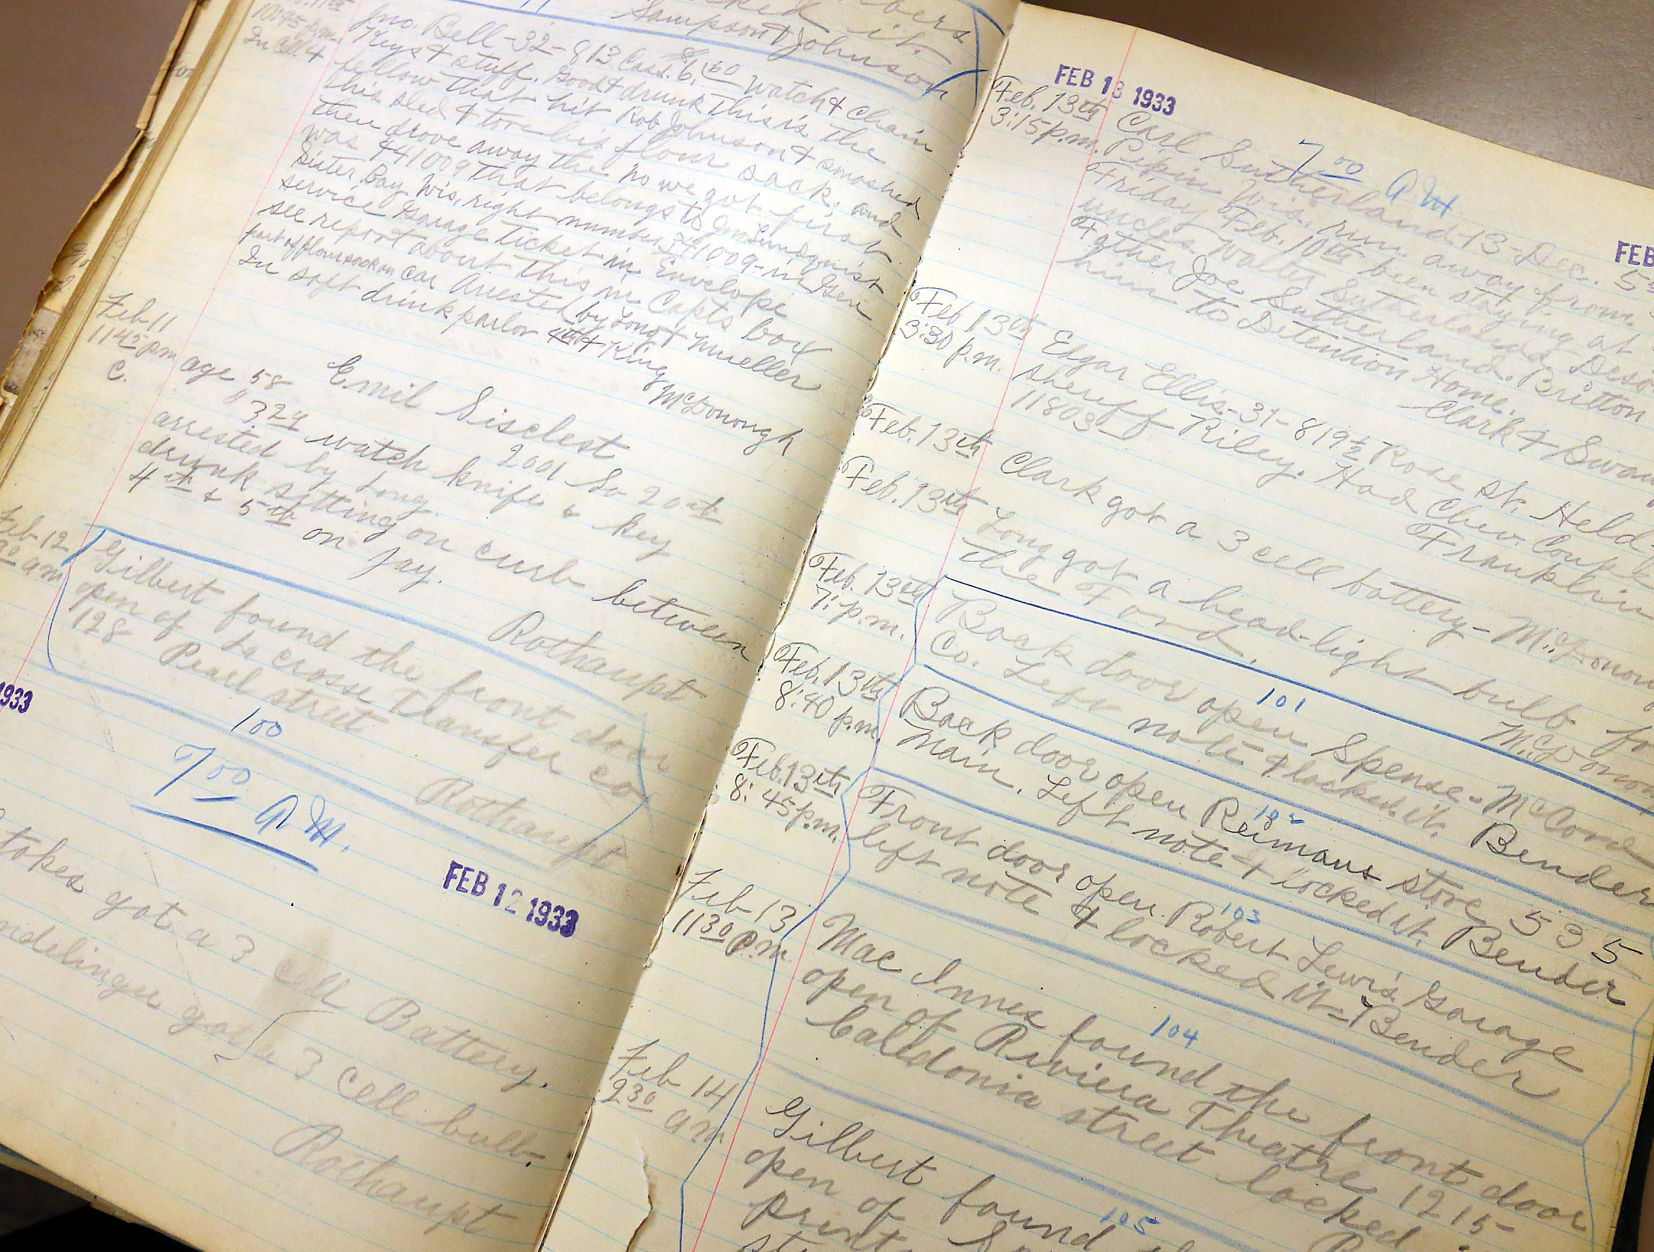 Sampson & Johnson
10:45 p.m.
In Cell 4
Jno. Bell - 32 - 813 Cass. 6, watch & chain
Keys & stuff. Good & drunk this is the
fellow that hit Rob Johnson & smashed
his sled & tore his flour sack, and
then drove away the No we got first
was 441009 that belongs to
Sister Bay, Wis. right number in Gen
service Garage ticket in Envelope
see report about this in Capts box
part of flour sack on car Arrested by Long & Mueller
In soft drink parlor 4th & King
McDonough
Feb 11
11 45 pm
C.
Emil Sisclest
age 58 2001 So 20th
$3 24 watch knife & key
arrested by Long.
drunk sitting on curb between
4th & 5th on Jay.
Rothaupt
Feb 12
30 am
Gilbert found the front door
open of La Crosse Transfer co
128 Pearl street.
Rothaupt
100
1933
7 00 A M.
FEB 12 1933
got a 3 cell Battery.
got a 3 cell bulb.
Rothaupt
FEB 13 1933
7 00 A M
FEB
Feb. 13th
3:15 p.m.
Carl Sutherland - 13 - Dec.
Pepin Wis. run away from
Friday Feb. 10th been staying at
uncles Walter Sutherlands Deso
Father Joe Sutherland. Britton
him to Detention Home.
Clark & Swan
Feb 13th
3:30 p.m.
Edgar Ellis - 31 - 819½ Rose St. Held
Sheriff Riley. Had Chev. Coupe
11803 Franklin
Feb. 13th
Clark got a 3 cell battery - McDonough
Feb. 13th
Long got a head-light bulb for
the Ford. McDonough
Feb. 13th
7: p.m.
101
Back door open Spense - McCord
Co. Left note & locked it. Bender
Feb. 13th
8:40 p.m.
102
Back door open Reimans store 535
Main. Left note & locked it. Bender
Feb. 13th
8:45 p.m.
103
Front door open. Robert Lewis Garage
left note & locked it - Bender
Feb 13
11 30 p.m
104
Mac Innes found the front door
open of Riviera Theatre 1215
Caledonia street locked
Feb 14
2 30 am
105
Gilbert found the
open of